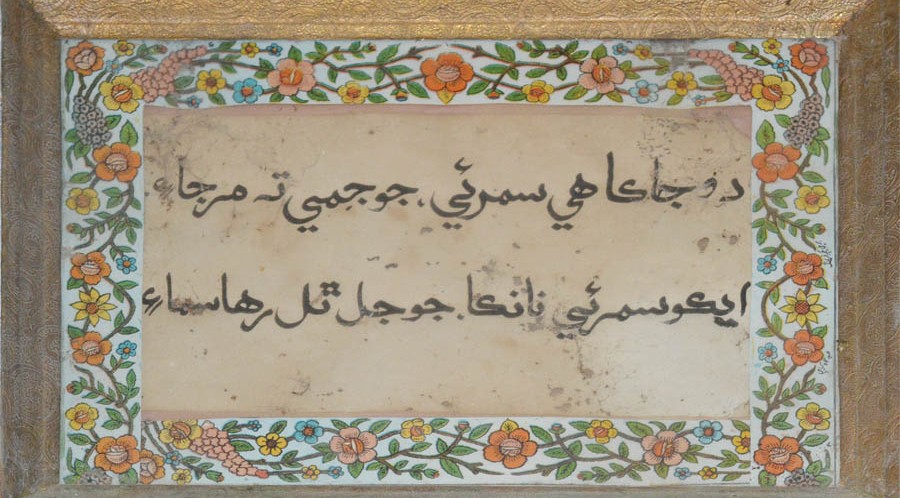 دوجا ڪاهي سمرئي. جو جمي ته مرجاءِ
ايڪو سمرئي نانڪا. جو جل ٿل رها سماءِ